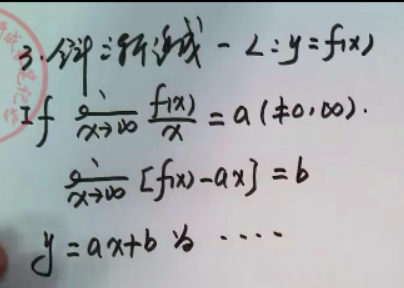 3. 斜渐近线 - L: y = f(x)
If lim x→∞ f(x)/x = a (≠0, ∞).
lim x→∞ [f(x) - ax] = b
y = ax+b 为 ....